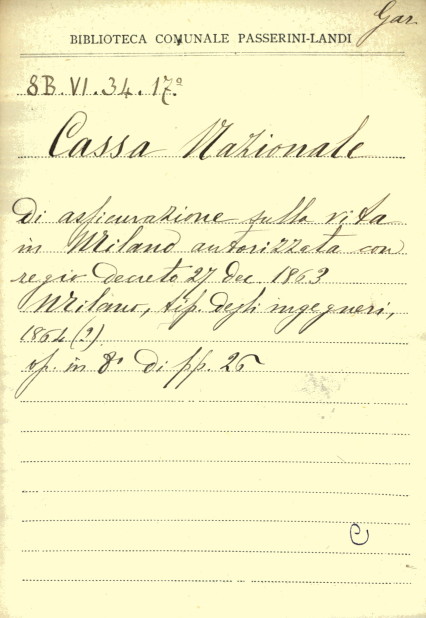 Gar.
BIBLIOTECA COMUNALE PASSERINI-LANDI
SB. VI. 34. 17.º
Cassa Nazionale
di assicurazione sulla vita
in Milano autorizzata con
regio decreto 27 dec 1863
Milano, tip. degli ingegneri,
1864 (?)
op. in 8º di pp. 26
C